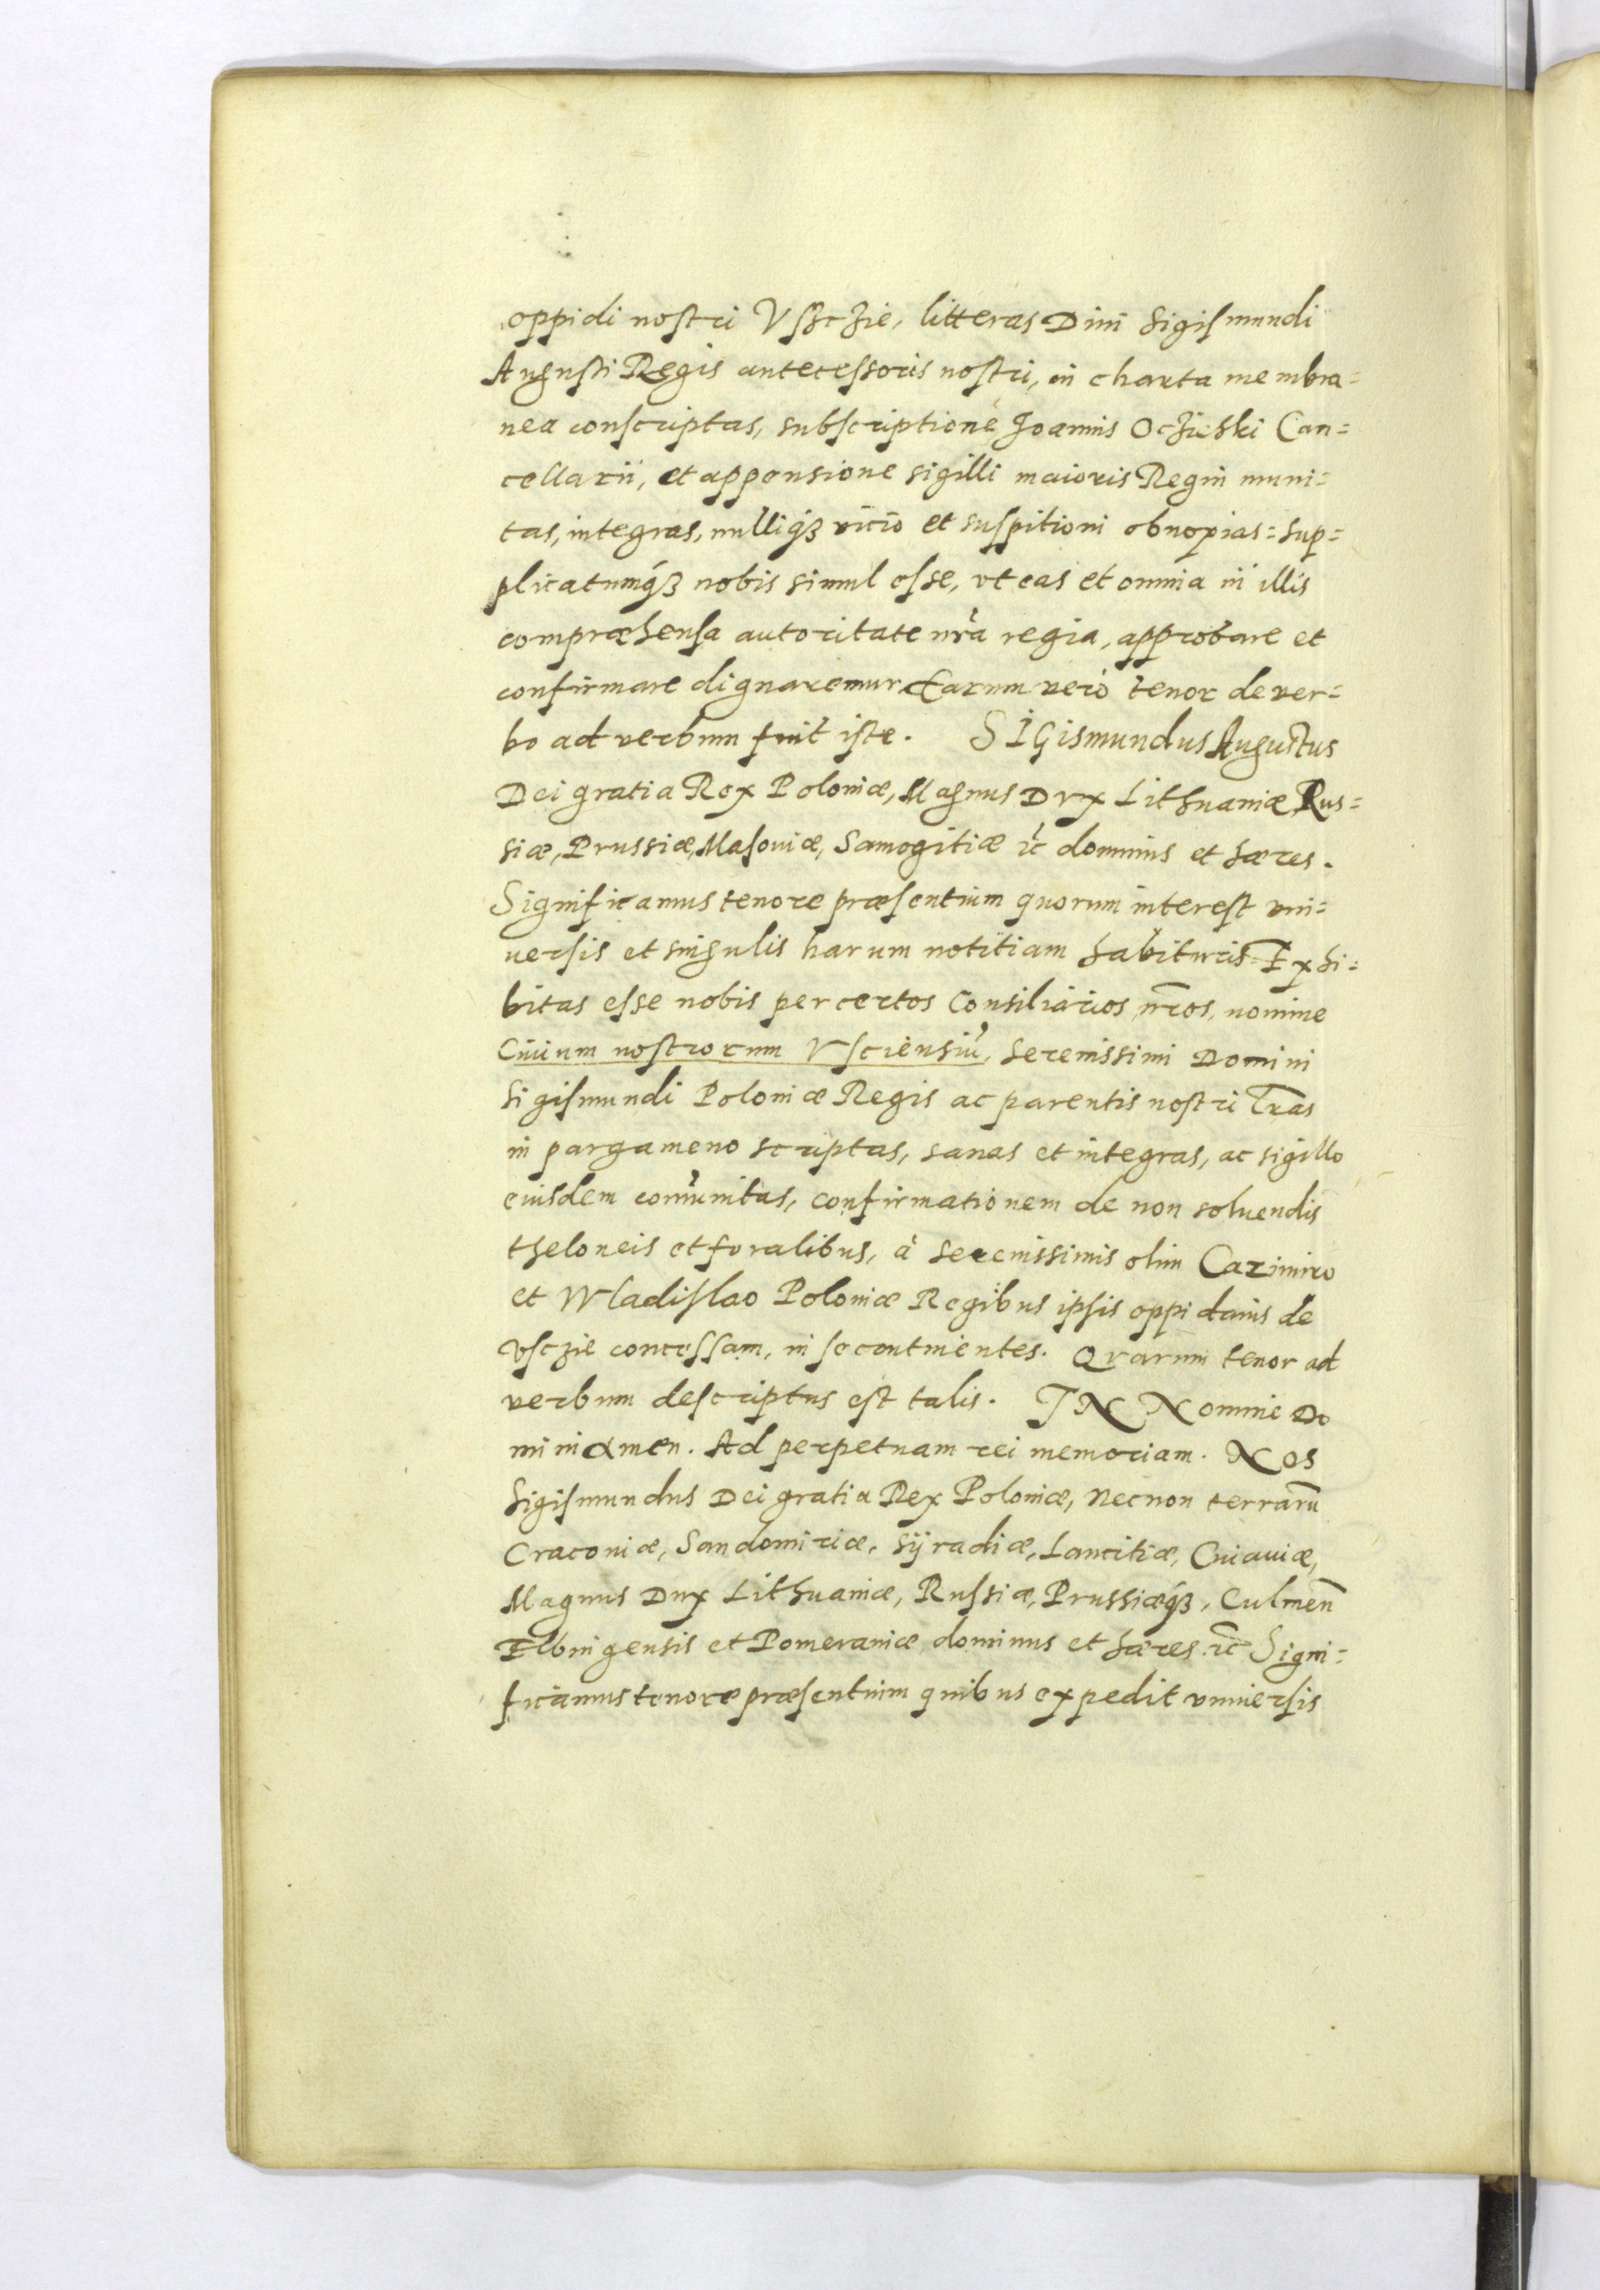 oppidi nostri Vszczie, litteras Diui Sigismundi
Augusti Regis antecessoris nostri, in charta membra=
nea conscriptas, subscriptione Joannis Oczieski Can=
cellarii, et appensione sigilli maioris Regni muni=
tas, integras, nulliq́ꝫ vicio et suspitioni obnoxias = sup=
plicatumq́ꝫ nobis simul esse, vt eas et omnia in illis
compræhensa autoritate nr̃a regia, approbare et
confirmare dignaremur Earum vero tenor de ver=
bo ad verbum fuit iste. SIGismundus Augustus
Dei gratia Rex Poloniæ, Magnus Dvx Lithuaniæ, Rus=
siæ, Prussiæ, Masouiæ, Samogitiæ ꝛc̃ dominus et hæres.
Significamus tenore præsentium quorum interest vni=
uersis et singulis harum notitiam habituris = Exhi=
bitas esse nobis per certos Consiliarios nr̃os, nomine
Ciuium nostrorum Vsciensiũ, Serenissimi Domini
Sigismundi Poloniæ Regis ac parentis nostri Lr̃as
in pargameno scriptas, sanas et integras, ac sigillo
eiusdem com̃unitas, confirmationem de non soluendis
theloneis et foralibus, à Serenissimis olim Cazimiro
et Wladislao Poloniæ Regibus ipsis oppidanis de
Vsczie concessam, in se continentes. Qvarum tenor ad
verbum descriptus est talis. IN Nomine Do
mini amen. Ad perpetuam rei memoriam. Nos
Sigismundus Dei gratia Rex Poloniæ, necnon terrarũ
Cracouiæ, Sandomiriæ, Syradiæ, Lanciciæ, Cuiauiæ,
Magnus Dux Lithuaniæ, Russiæ, Prussiæq́ꝫ, Culmeñ
Elbingensis et Pomeraniæ dominus et hæres ꝛc̃ Signi=
ficamus tenore præsentium quibus expedit vniuersis